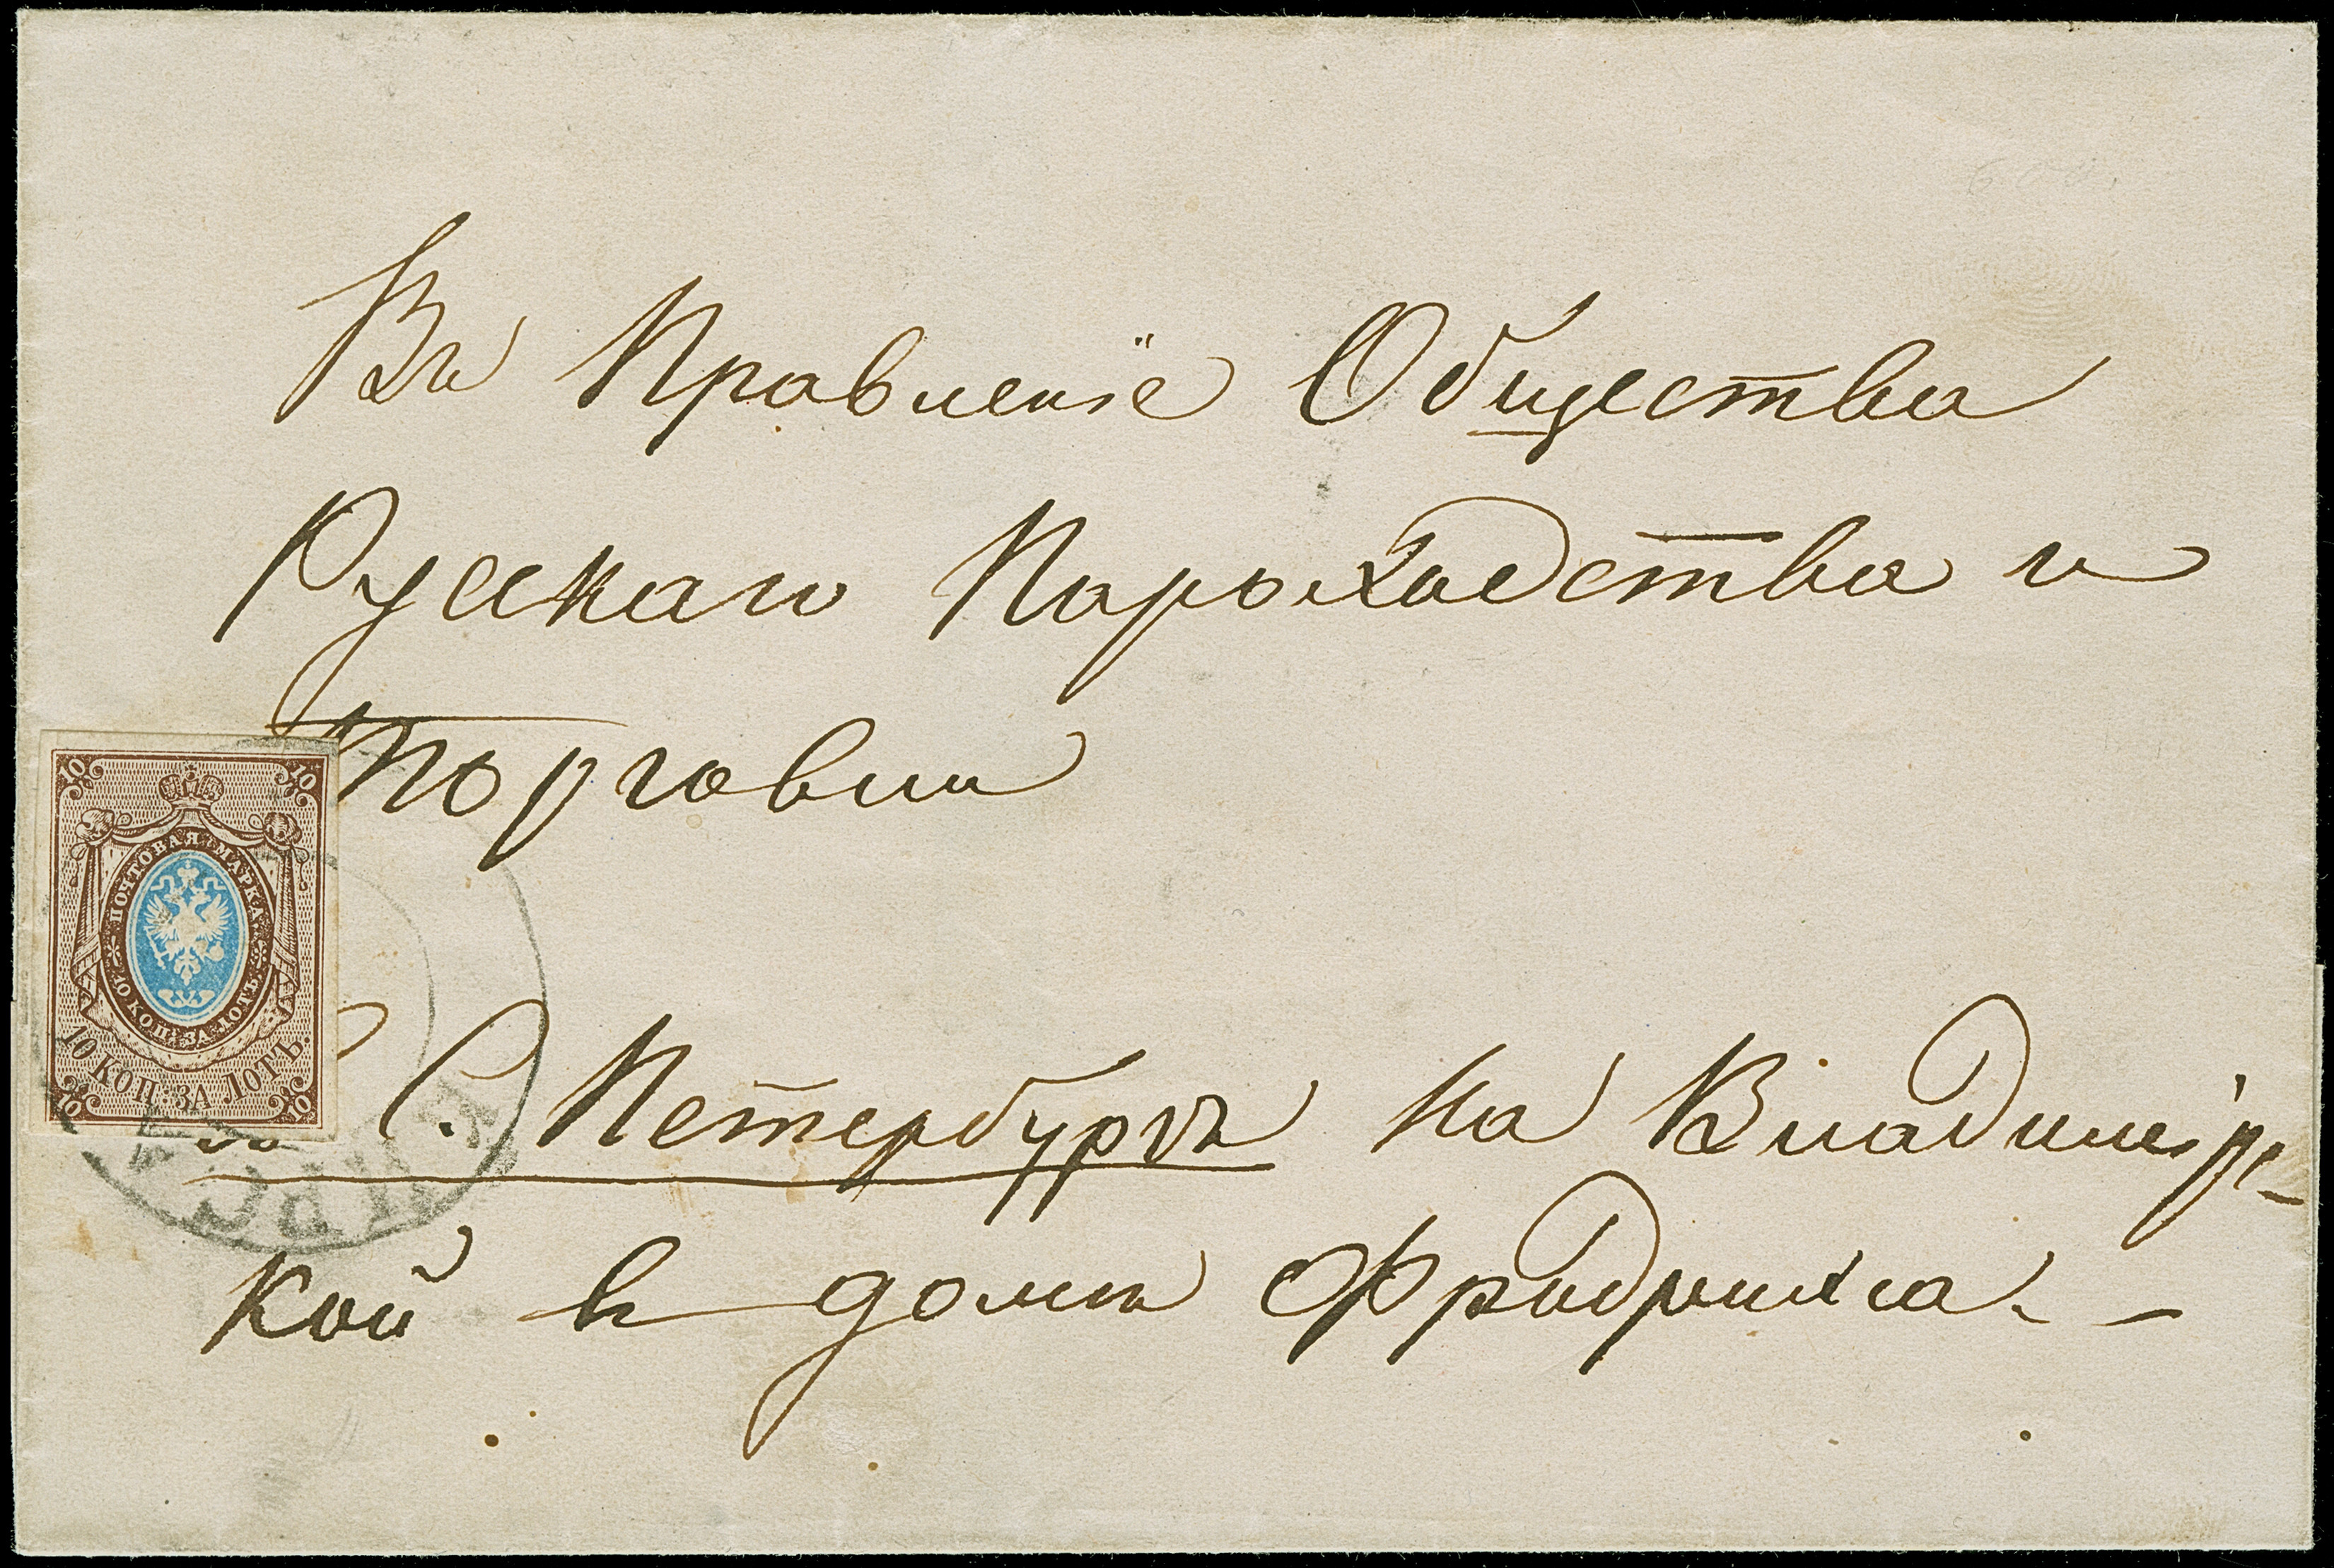 Въ Правленіе Общества
Русскаго Пароходства и
Торговли
10 10
ПОЧТОВАЯ МАРКА
10 КОП. ЗА ЛОТЪ
10 КОП. ЗА ЛОТЪ.
10 10
въ С. Петербургъ на Владимiрс-
кой в домъ Фридрихса